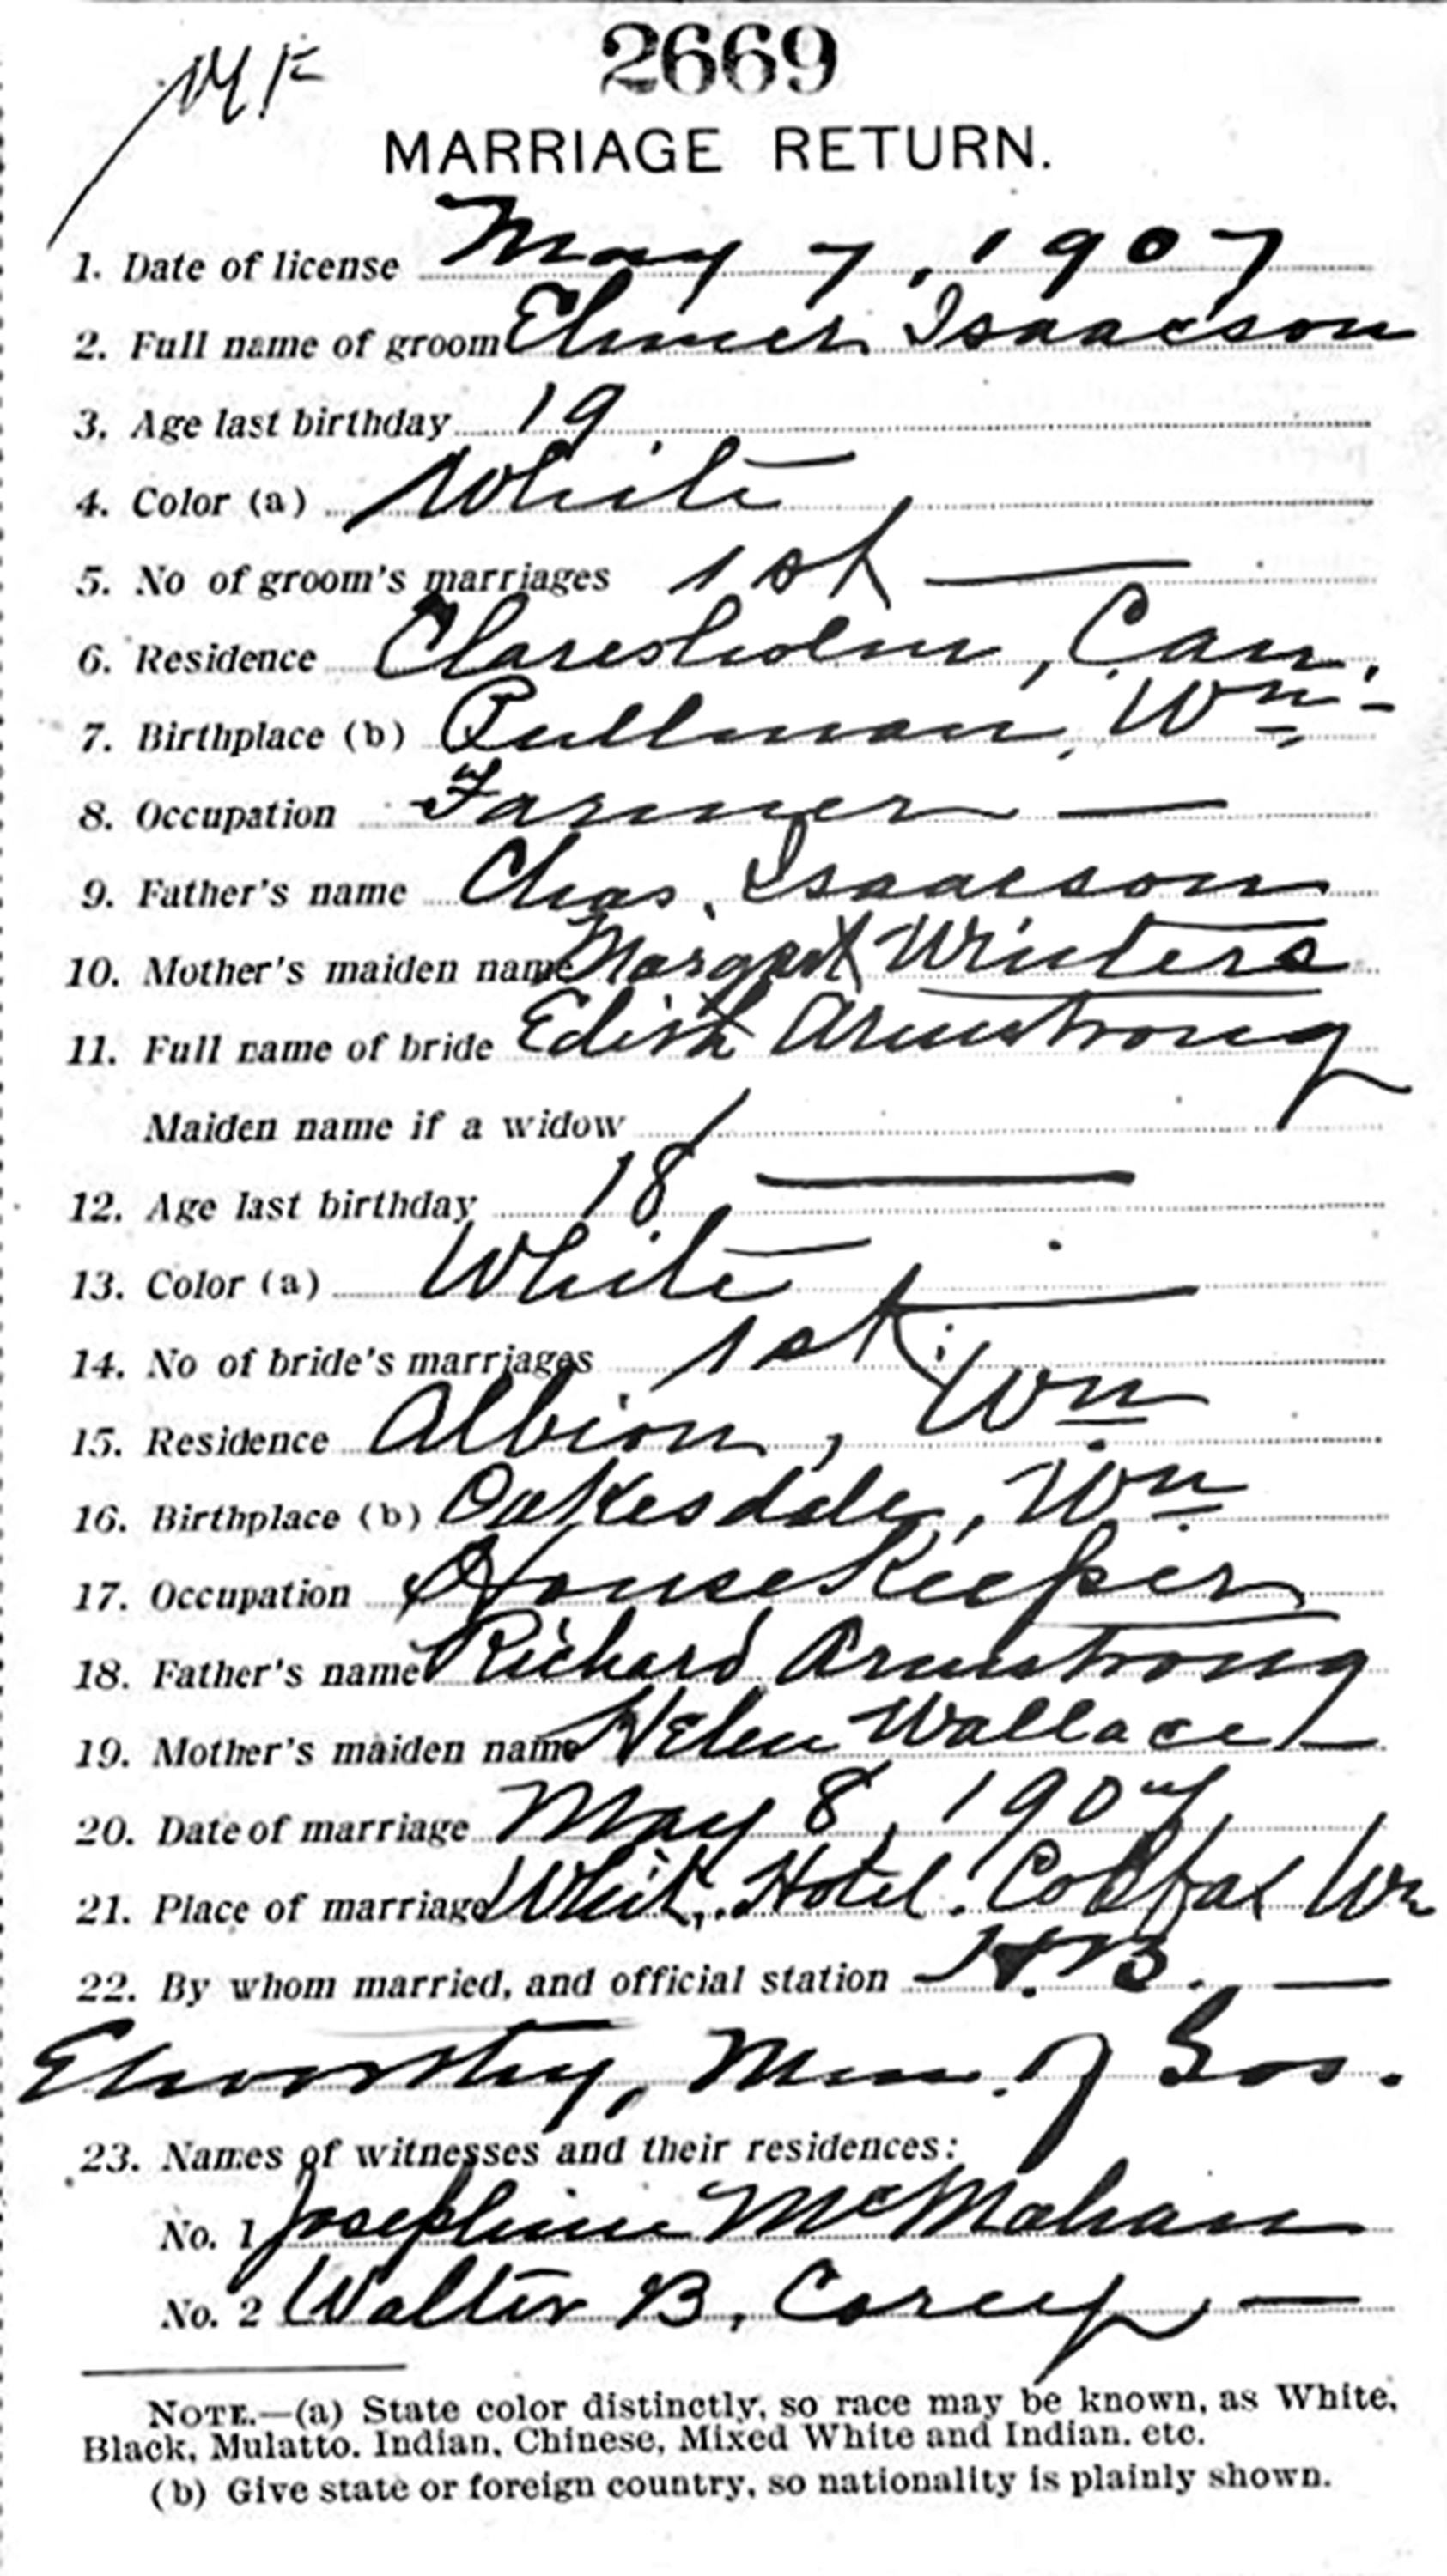 2669
MF
MARRIAGE RETURN.
1. Date of license May 7, 1907
2. Full name of groom Elmer Isaacson
3. Age last birthday 19
4. Color (a) White
5. No of groom's marriages 1st
6. Residence Claresholm, Can.
7. Birthplace (b) Pullman, Wn.
8. Occupation Farmer
9. Father's name Chas. Isaacson
10. Mother's maiden name Margaret Winters
11. Full name of bride Edith Armstrong
Maiden name if a widow
12. Age last birthday 18
13. Color (a) White
14. No of bride's marriages 1st
15. Residence Albion, Wn
16. Birthplace (b) Oakesdale, Wn
17. Occupation House Keeper
18. Father's name Richard Armstrong
19. Mother's maiden name Helen Wallace
20. Date of marriage May 8, 1907
21. Place of marriage Hotel. Colfax Wn
22. By whom married, and official station H. B.
Elworthy, Min. of Gos.
23. Names of witnesses and their residences:
No. 1 Josephine McMahan
No. 2 Walter B. Corey
NOTE.—(a) State color distinctly, so race may be known, as White,
Black, Mulatto. Indian, Chinese, Mixed White and Indian. etc.
(b) Give state or foreign country, so nationality is plainly shown.